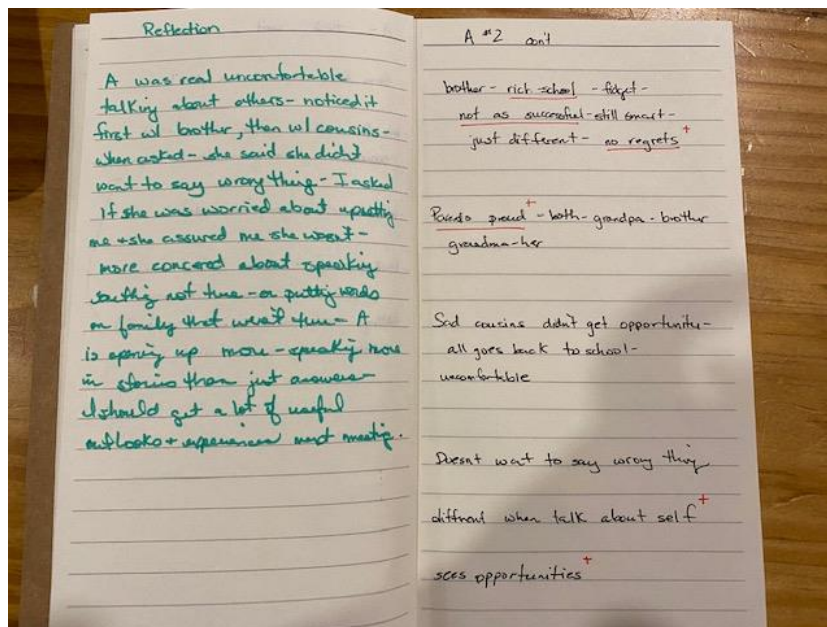 Reflection
A was real uncomfortable
talking about others - noticed it
first w/ brother, then w/ cousins -
when asked - she said she didn't
want to say wrong thing - I asked
if she was worried about upsetting
me + she assured me she wasn't -
more concered about speaking
somthing not true - or putting words
on family that weren't true - A
is opening up more - speaking more
in stories than just answers -
I should get a lot of useful
outlooks + experiences next meeting.
A #2 con't
brother - rich school - fidget -
not as successful - still smart -
just different - no regrets +
Parents proud + - both - grandpa - brother
grandma - her
Sad cousins didn't get opportunity -
all goes back to school -
uncomfortable
Doesnt want to say wrong thing
diffrent when talk about self +
sees opportunities +